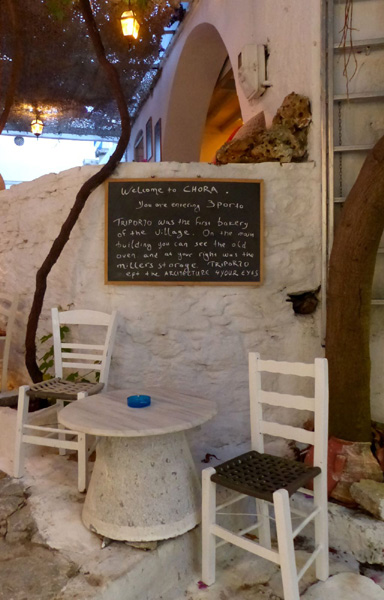 Welcome to CHORA.
You are entering 3porto
TRIPORTO was the first bakery
of the village. On the main
building you can see the old
oven and at your right was the
millers storage. TRIPORTO
kept the ARCHITECTURE 4YOUR EYES